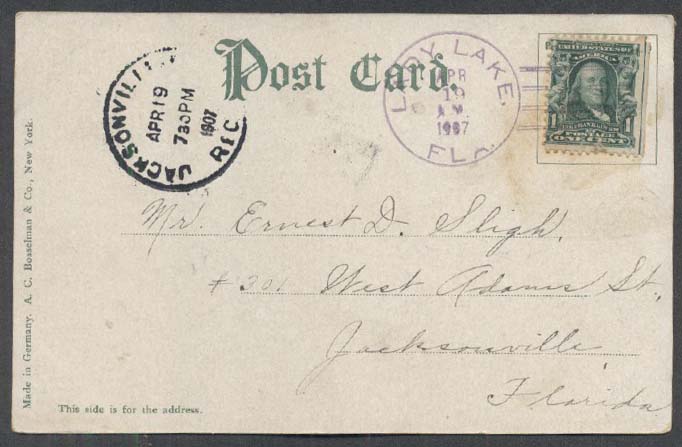 Post Card
LADY LAKE,
APR
19
A.M.
1907
FLA.
UNITED STATES OF
AMERICA
1 1
FRANKLIN
POSTAGE
ONE CENT
JACKSONVILL
APR 19
730PM
1907
REC.
Mr. Ernest D. Sligh,
# 301 West Adams St,
Jacksonville
Florida
This side is for the address.
Made in Germany. A. C. Bosselman & Co., New York.